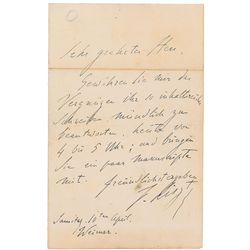 Sehr geehrter Herr.
Gewähren Sie mir das
Vergnügen ihr so inhaltreiches
Schreiben mündlich zu
beantworten, heute von
4 bis 5 Uhr; und bringen
Sie ein paar manuscripte
mit.
freundlichst ergeben
F. Liszt
Samstag, 10ten April.
Weimar.